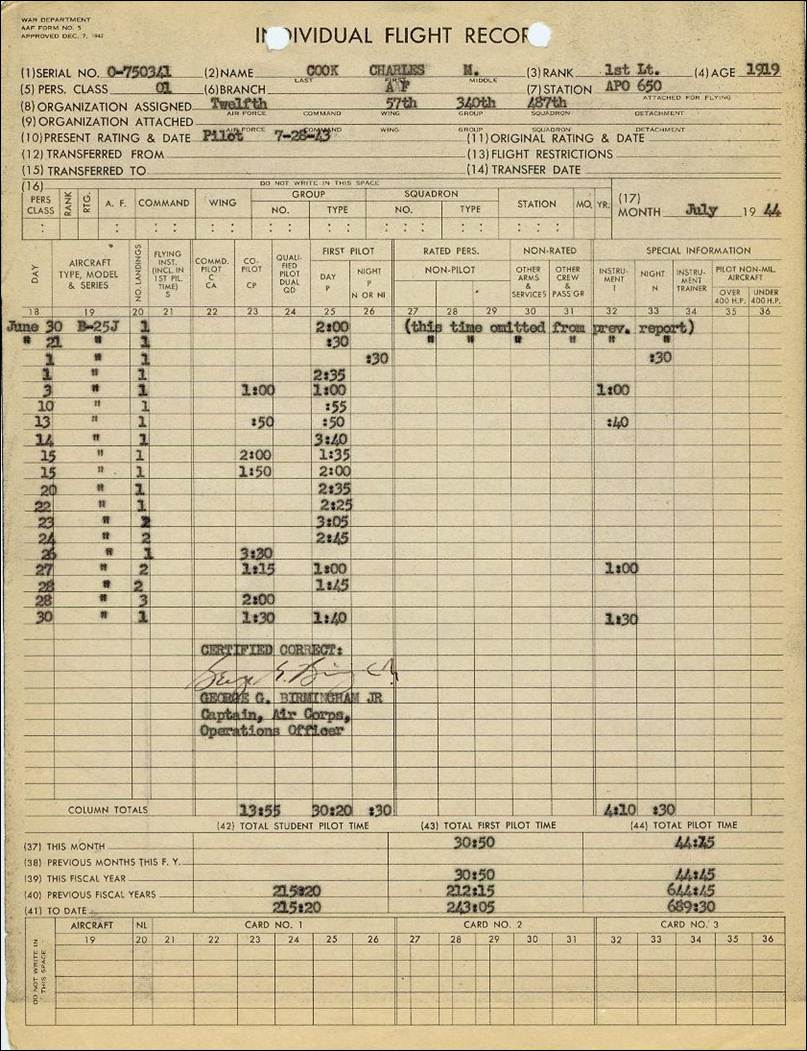 WAR DEPARTMENT
AAF FORM NO. 5
APPROVED DEC. 7, 1942
INDIVIDUAL FLIGHT RECORD
(1) SERIAL NO. O-750341 (2) NAME COOK CHARLES M. (3) RANK 1st Lt. (4) AGE 1919
LAST FIRST MIDDLE
(5) PERS. CLASS 01 (6) BRANCH A F (7) STATION APO 650
(8) ORGANIZATION ASSIGNED Twelfth 57th 340th 487th ATTACHED FOR FLYING
AIR FORCE COMMAND WING GROUP SQUADRON DETACHMENT
(9) ORGANIZATION ATTACHED
AIR FORCE COMMAND WING GROUP SQUADRON DETACHMENT
(10) PRESENT RATING & DATE Pilot 7-28-43 (11) ORIGINAL RATING & DATE
(12) TRANSFERRED FROM (13) FLIGHT RESTRICTIONS
(15) TRANSFERRED TO (14) TRANSFER DATE
(16) DO NOT WRITE IN THIS SPACE
PERS CLASS RANK RTG. A. F. COMMAND WING GROUP NO. TYPE SQUADRON NO. TYPE STATION MO. YR. (17) MONTH July 19 44
DAY AIRCRAFT TYPE, MODEL & SERIES NO. LANDINGS FLYING INST. (INCL. IN 1ST PIL. TIME) S COMMD. PILOT C CA CO-PILOT CP QUALIFIED PILOT DUAL QD FIRST PILOT DAY P NIGHT P N OR NI RATED PERS. NON-PILOT NON-RATED OTHER ARMS & SERVICES OTHER CREW & PASS'GR SPECIAL INFORMATION INSTRUMENT I NIGHT N INSTRUMENT TRAINER PILOT NON-MIL. AIRCRAFT OVER 400 H.P. UNDER 400 H.P.
18 19 20 21 22 23 24 25 26 27 28 29 30 31 32 33 34 35 36
June 30 B-25J 1 2:00 (this time omitted from prev. report)
" 21 " 1 :30 " " " " " "
1 " 1 :30 :30
1 " 1 2:35
3 " 1 1:00 1:00 1:00
10 " 1 :55
13 " 1 :50 :50 :40
14 " 1 3:40
15 " 1 2:00 1:35
15 " 1 1:50 2:00
20 " 1 2:35
22 " 1 2:25
23 " 2 3:05
24 " 2 2:45
26 " 1 3:30
27 " 2 1:15 1:00 1:00
28 " 2 1:45
28 " 3 2:00
30 " 1 1:30 1:40 1:30
CERTIFIED CORRECT:
GEORGE G. BIRMINGHAM JR
Captain, Air Corps,
Operations Officer
COLUMN TOTALS 13:55 30:20 :30 4:10 :30
(42) TOTAL STUDENT PILOT TIME (43) TOTAL FIRST PILOT TIME (44) TOTAL PILOT TIME
(37) THIS MONTH 30:50 44:45
(38) PREVIOUS MONTHS THIS F. Y.
(39) THIS FISCAL YEAR 30:50 44:45
(40) PREVIOUS FISCAL YEARS 215:20 212:15 644:45
(41) TO DATE 215:20 243:05 689:30
DO NOT WRITE IN THIS SPACE
AIRCRAFT NL CARD NO. 1 CARD NO. 2 CARD NO. 3
19 20 21 22 23 24 25 26 27 28 29 30 31 32 33 34 35 36